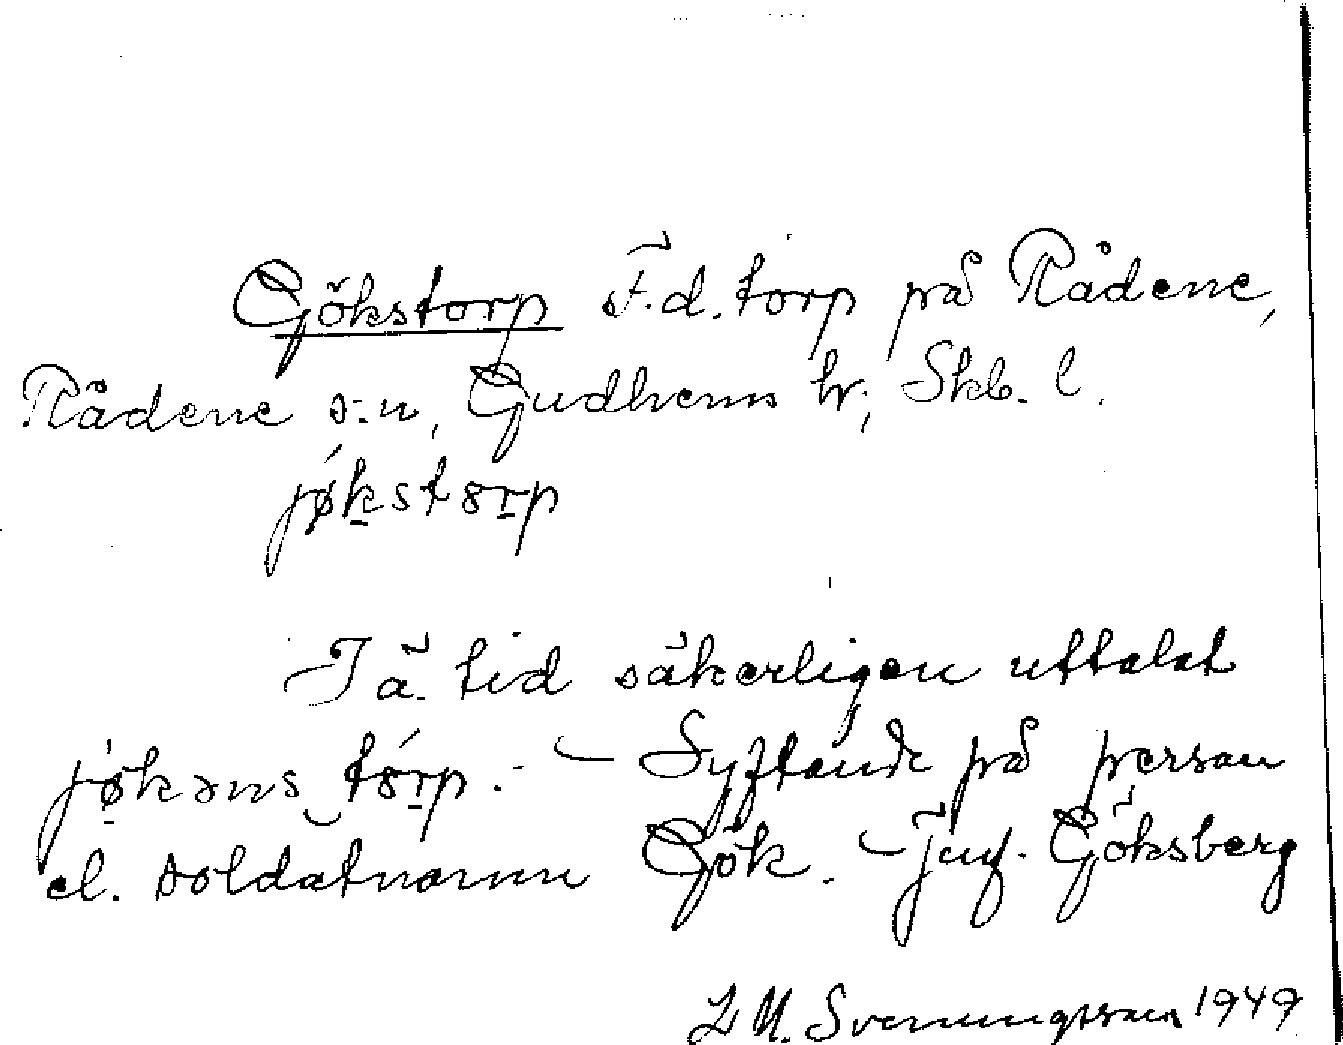 Gökstorp F.d. torp på Rådene,
Rådene s:n, Gudhems hr, Skb. l.
jøkstorp
I ä. tid säkerligen uttalat
jøkəns torp. – Syftande på person
el. soldatnamn Gök. – Jmf. Göksberg
L M. Svenungsson 1949